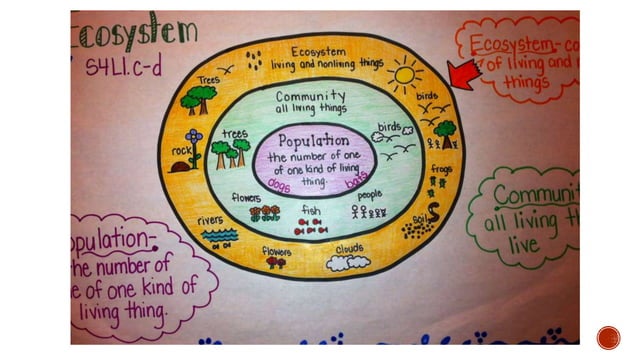 cosystem
S4L1.c-d
Ecosystem
living and nonliving things
Trees
birds
Community
all living things
trees
birds
Population
the number of one
of one kind of living
thing.
dogs
bats
rock
frogs
flowers
fish
people
rivers
soil
flowers
clouds
Ecosystem- co
of living and
things
Communi
all living th
live
opulation-
he number of
e of one kind of
living thing.